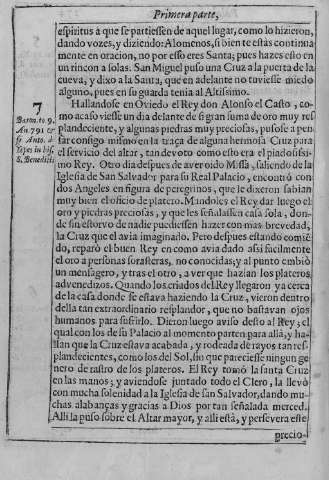 Primera parte,
espiritus a que se partiessen de aquel lugar, como lo hizieron,
dando vozes, y diziendo: Alomenos, si bien te estàs continua
mente en oracion, no por esso eres Santa; pues hazes esso en
vn rincon a solas. San Miguel puso vna Cruz a la puerta de la
cueva, y dixo a la Santa, que en adelante no tuviesse miedo
alguno, pues en su guarda tenia al Altissimo.
7
Baron. to. 9.
An. 791. &
Fr. Anto. d
Yepes in his.
S. Benedict.
Hallandose en Oviedo el Rey don Alonso el Casto, co-
mo acaso viesse vn dia delante de si gran suma de oro muy res
plandeciente, y algunas piedras muy preciosas, pusose a pen-
sar consigo mismo en la traça de alguna hermosa Cruz para
el servicio del altar, tan devoto como esto era el piadosissi-
mo Rey. Otro dia despues de aver oido Missa, saliendo de la
Iglesia de San Salvador para su Real Palacio, encontrò con
dos Angeles en figura de peregrinos, que le dixeron sabian
muy bien el oficio de platero. Mandoles el Rey dar luego el
oro y piedras preciosas, y que les señalassen casa sola, don-
de sin estorvo de nadie pudiessen hazer con mas brevedad,
la Cruz que el avia imaginado. Pero despues estando comiẽ
do, reparò el buen Rey en como avia dado assi facilmente
el oro a personas forasteras, no conocidas; y al punto embiò
vn mensagero, y tras el otro, a ver que hazian los plateros
advenedizos. Quando los criados del Rey llegaron ya cerca
de la casa donde se estava haziendo la Cruz, vieron dentro
della tan extraordinario resplandor, que no bastavan ojos
humanos para sufrirlo. Dieron luego aviso desto al Rey; el
qual con los de su Palacio al momento parten para allà, y ha-
llan que la Cruz estava acabada, y rodeada de rayos tan res-
plandecientes, como los del Sol, sin que pareciesse ningun ge
nero de rastro de los plateros. El Rey tomò la santa Cruz
en las manos; y aviendose juntado todo el Clero, la llevò
con mucha solenidad a la Iglesia de san Salvador, dando mu-
chas alabanças y gracias a Dios por tan señalada merced.
Alli la puso sobre el Altar mayor, y alli està, y persevera este
precio-